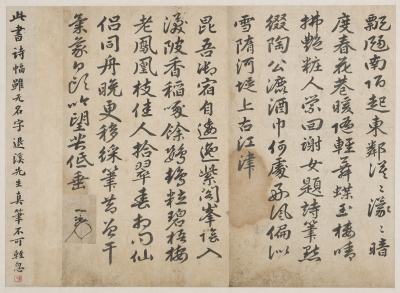 飄颺南陌起東鄰漠〻濛〻暗
度春花巷暖隨輕舞蝶玉樓晴
拂艶粧人縈回謝女題詩筆點
綴陶公漉酒巾何處好風偏似
雪隋河堤上古江津
昆吾御宿自逶迤紫閣峯陰入
渼陂香稻啄餘鸚鵡粒碧梧棲
老鳳凰枝佳人拾翠春相問仙
侶同舟晚更移綵筆昔曾干
氣象白頭吟望苦低垂
此書詩幅雖无名字退溪先生真筆不可輕忽